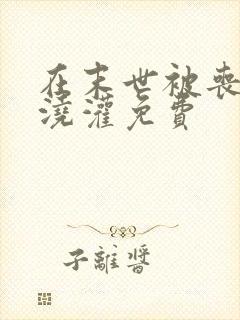 在末世被丧
浇灌免费
子離醬